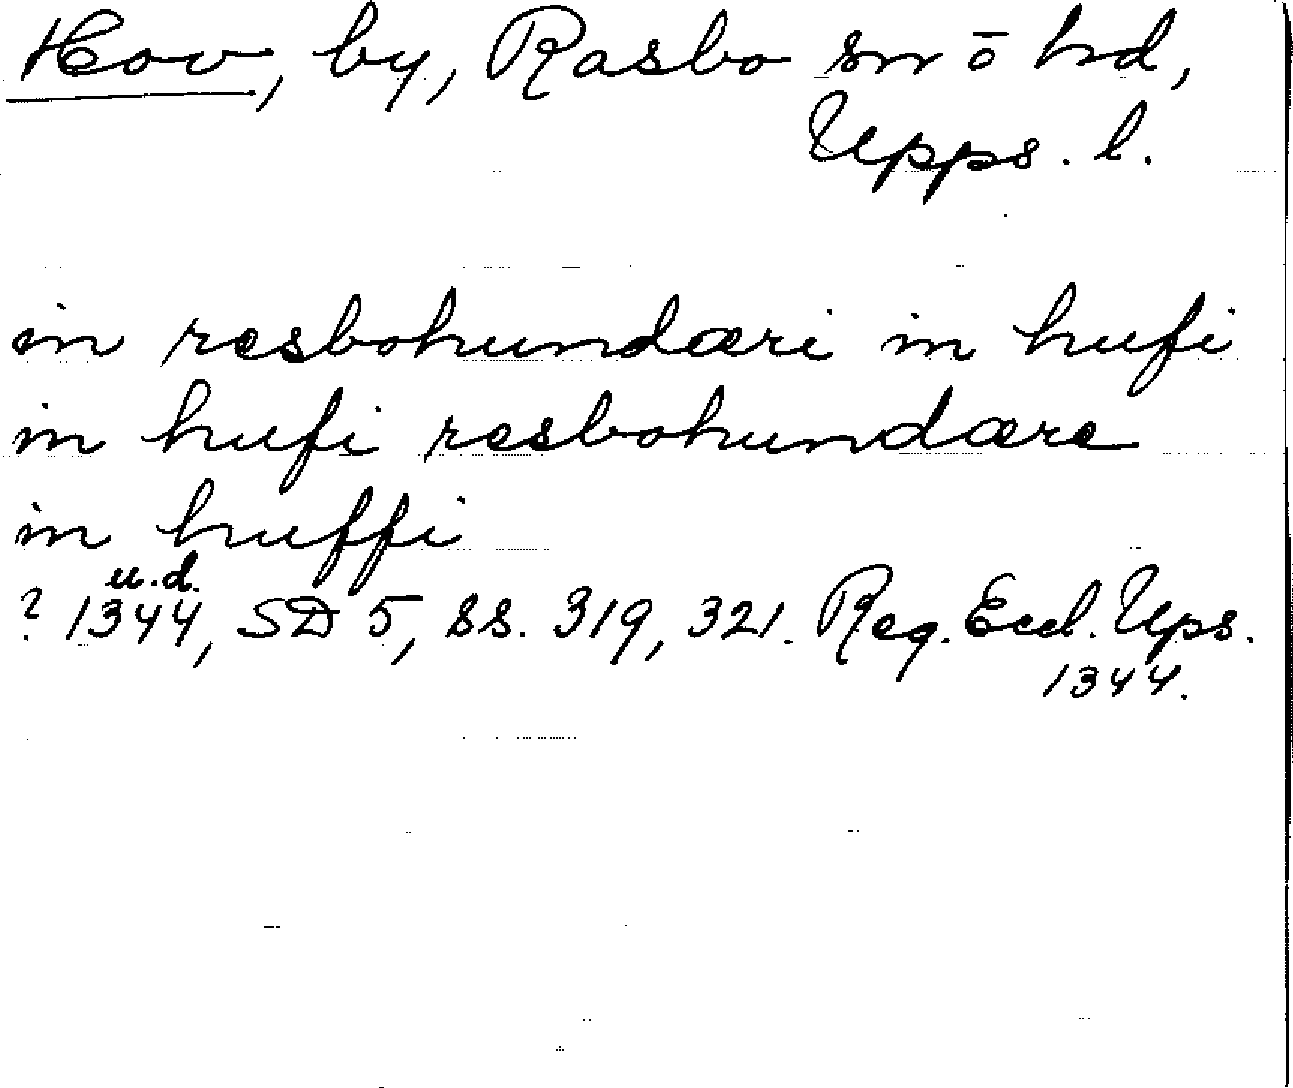 Hov, by, Rasbo sn ō hd,
Upps. l.
in resbohundæri in hufi
in hufi resbohundære
in huffi
u.d.
? 1344, SD 5, ss. 319, 321. Reg. Eccl. Ups.
1344.